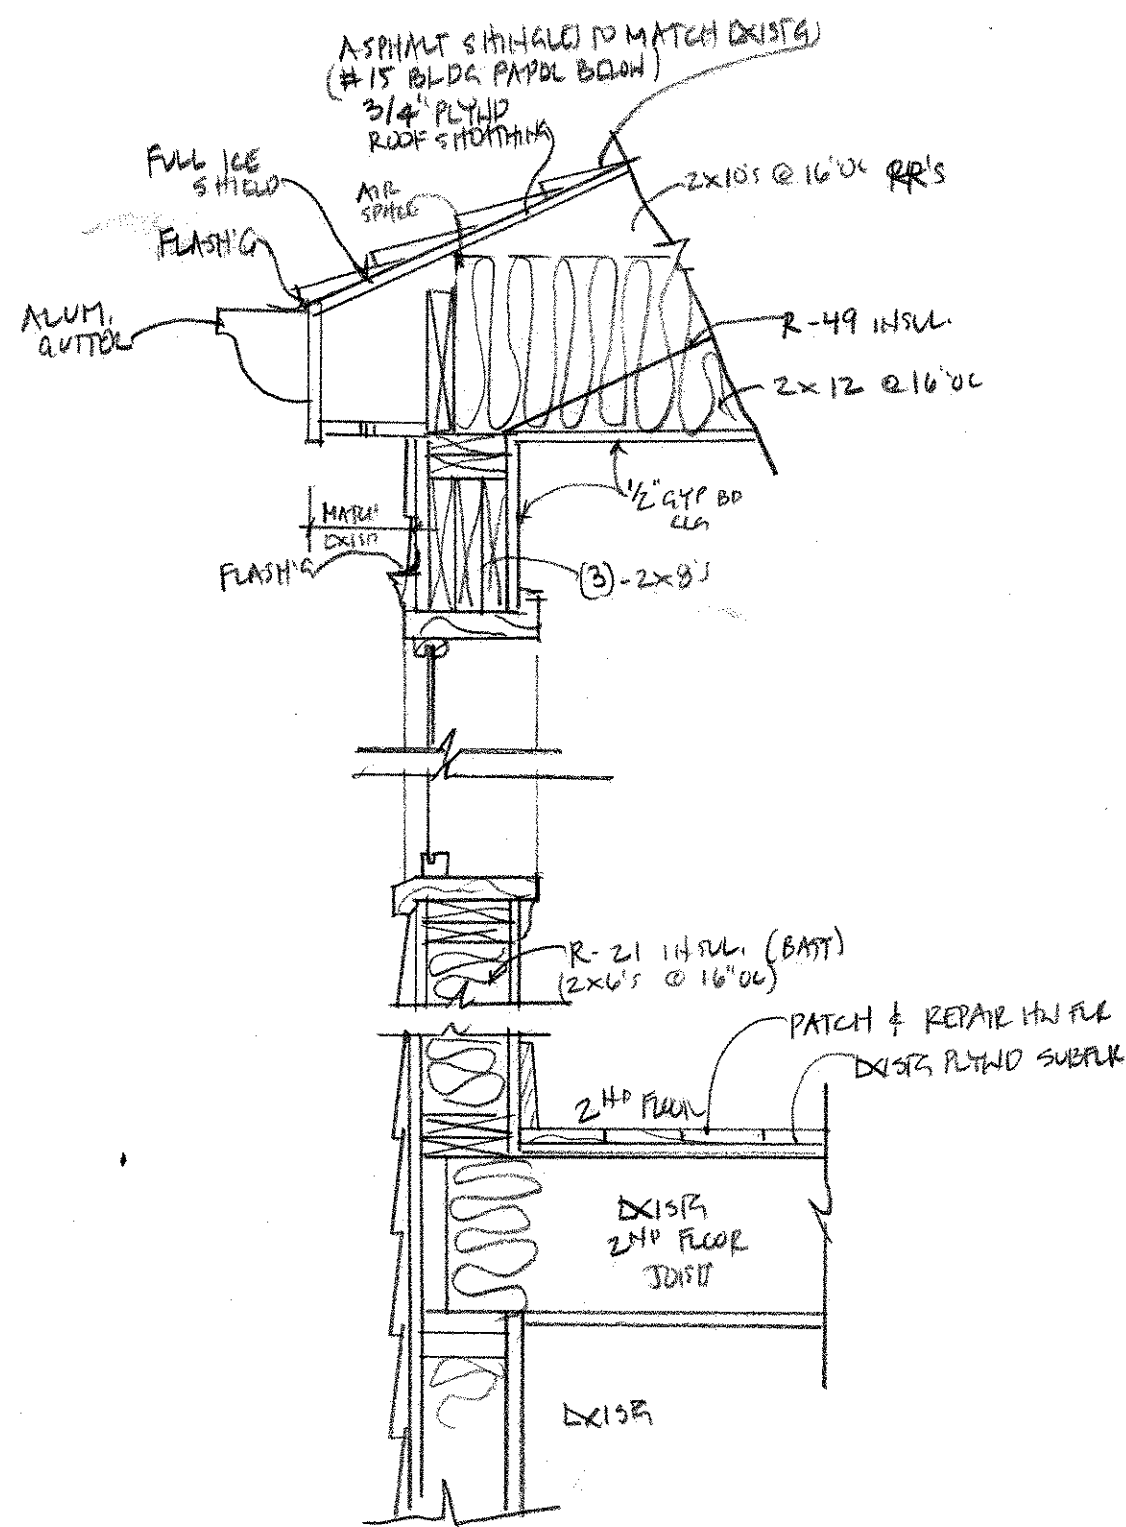 ASPHALT SHINGLES TO MATCH EXIST'G
(#15 BLDG PAPER BELOW)
3/4" PLYWD
ROOF SHEATHING
FULL ICE
SHIELD
AIR
SPACE
2x10'S @ 16"OC RR'S
FLASH'G
ALUM.
GUTTER
R-49 INSUL.
2x12 @ 16"OC
1/2" GYP BD
CLG
MATCH
EXIST
FLASH'G
(3)-2x8'S
R-21 INSUL. (BATT)
(2x6'S @ 16"OC)
PATCH & REPAIR HW FLR
EXIST'G PLYWD SUBFLR
2ND FLOOR
EXIST'G
2ND FLOOR
JOIST
EXIST'G